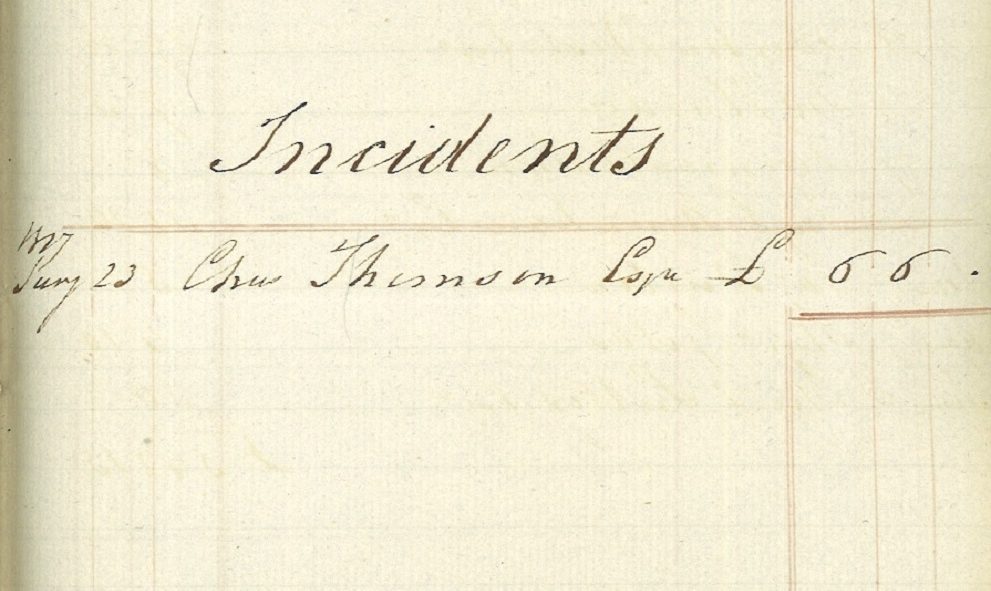 Incidents
Jany 23 Chas Thomson Esqr £ 6 6 .